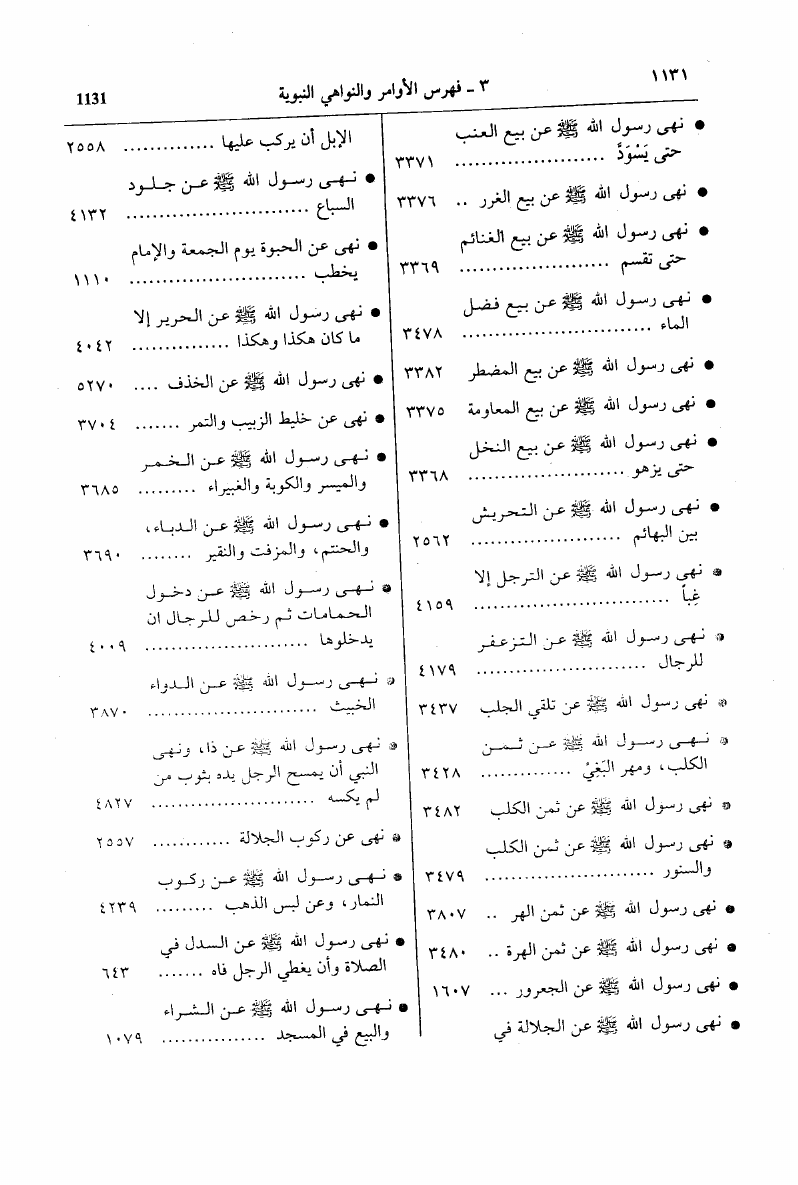 ١١٣١
٣ - فهرس الأوامر والنواهي النبوية
1131
● نهى رسول الله ﷺ عن بيع العنب
حتى يَسْوَدَّ ........................ ٣٣٧١
● نهى رسول الله ﷺ عن بيع الغرر .. ٣٣٧٦
● نهى رسول الله ﷺ عن بيع الغنائم
حتى تقسم ........................ ٣٣٦٩
● نهى رسول الله ﷺ عن بيع فضل
الماء ............................ ٣٤٧٨
● نهى رسول الله ﷺ عن بيع المضطر ٣٣٨٢
● نهى رسول الله ﷺ عن بيع المعاومة ٣٣٧٥
● نهى رسول الله ﷺ عن بيع النخل
حتى يزهو ........................ ٣٣٦٨
● نهى رسول الله ﷺ عن التحريش
بين البهائم ....................... ٢٥٦٢
● نهى رسول الله ﷺ عن الترجل إلا
غِباً .............................. ٤١٥٩
● نهى رسول الله ﷺ عن التزعفر
للرجال .......................... ٤١٧٩
● نهى رسول الله ﷺ عن تلقي الجلب ٣٤٣٧
● نهى رسول الله ﷺ عن ثمن
الكلب، ومهر البَغِيْ .............. ٣٤٢٨
● نهى رسول الله ﷺ عن ثمن الكلب ٣٤٨٢
● نهى رسول الله ﷺ عن ثمن الكلب
والسنور .......................... ٣٤٧٩
● نهى رسول الله ﷺ عن ثمن الهر .. ٣٨٠٧
● نهى رسول الله ﷺ عن ثمن الهرة .. ٣٤٨٠
● نهى رسول الله ﷺ عن الجعرور ... ١٦٠٧
● نهى رسول الله ﷺ عن الجلالة في
الإبل أن يركب عليها .............. ٢٥٥٨
● نهى رسول الله ﷺ عن جلود
السباع ............................ ٤١٣٢
● نهى عن الحبوة يوم الجمعة والإمام
يخطب ........................... ١١١٠
● نهى رسول الله ﷺ عن الحرير إلا
ما كان هكذا وهكذا ............... ٤٠٤٢
● نهى رسول الله ﷺ عن الخذف .... ٥٢٧٠
● نهى عن خليط الزبيب والتمر ....... ٣٧٠٤
● نهى رسول الله ﷺ عن الخمر
والميسر والكوبة والغبيراء ......... ٣٦٨٥
● نهى رسول الله ﷺ عن الدباء،
والحنتم، والمزفت والنقير ........ ٣٦٩٠
● نهى رسول الله ﷺ عن دخول
الحمامات ثم رخص للرجال ان
يدخلوها ......................... ٤٠٠٩
● نهى رسول الله ﷺ عن الدواء
الخبيث .......................... ٣٨٧٠
● نهى رسول الله ﷺ عن ذا، ونهى
النبي أن يمسح الرجل يده بثوب من
لم يكسه ......................... ٤٨٢٧
● نهى عن ركوب الجلالة ............ ٢٥٥٧
● نهى رسول الله ﷺ عن ركوب
النمار، وعن لبس الذهب ......... ٤٢٣٩
● نهى رسول الله ﷺ عن السدل في
الصلاة وأن يغطي الرجل فاه ....... ٦٤٣
● نهى رسول الله ﷺ عن الشراء
والبيع في المسجد ................ ١٠٧٩